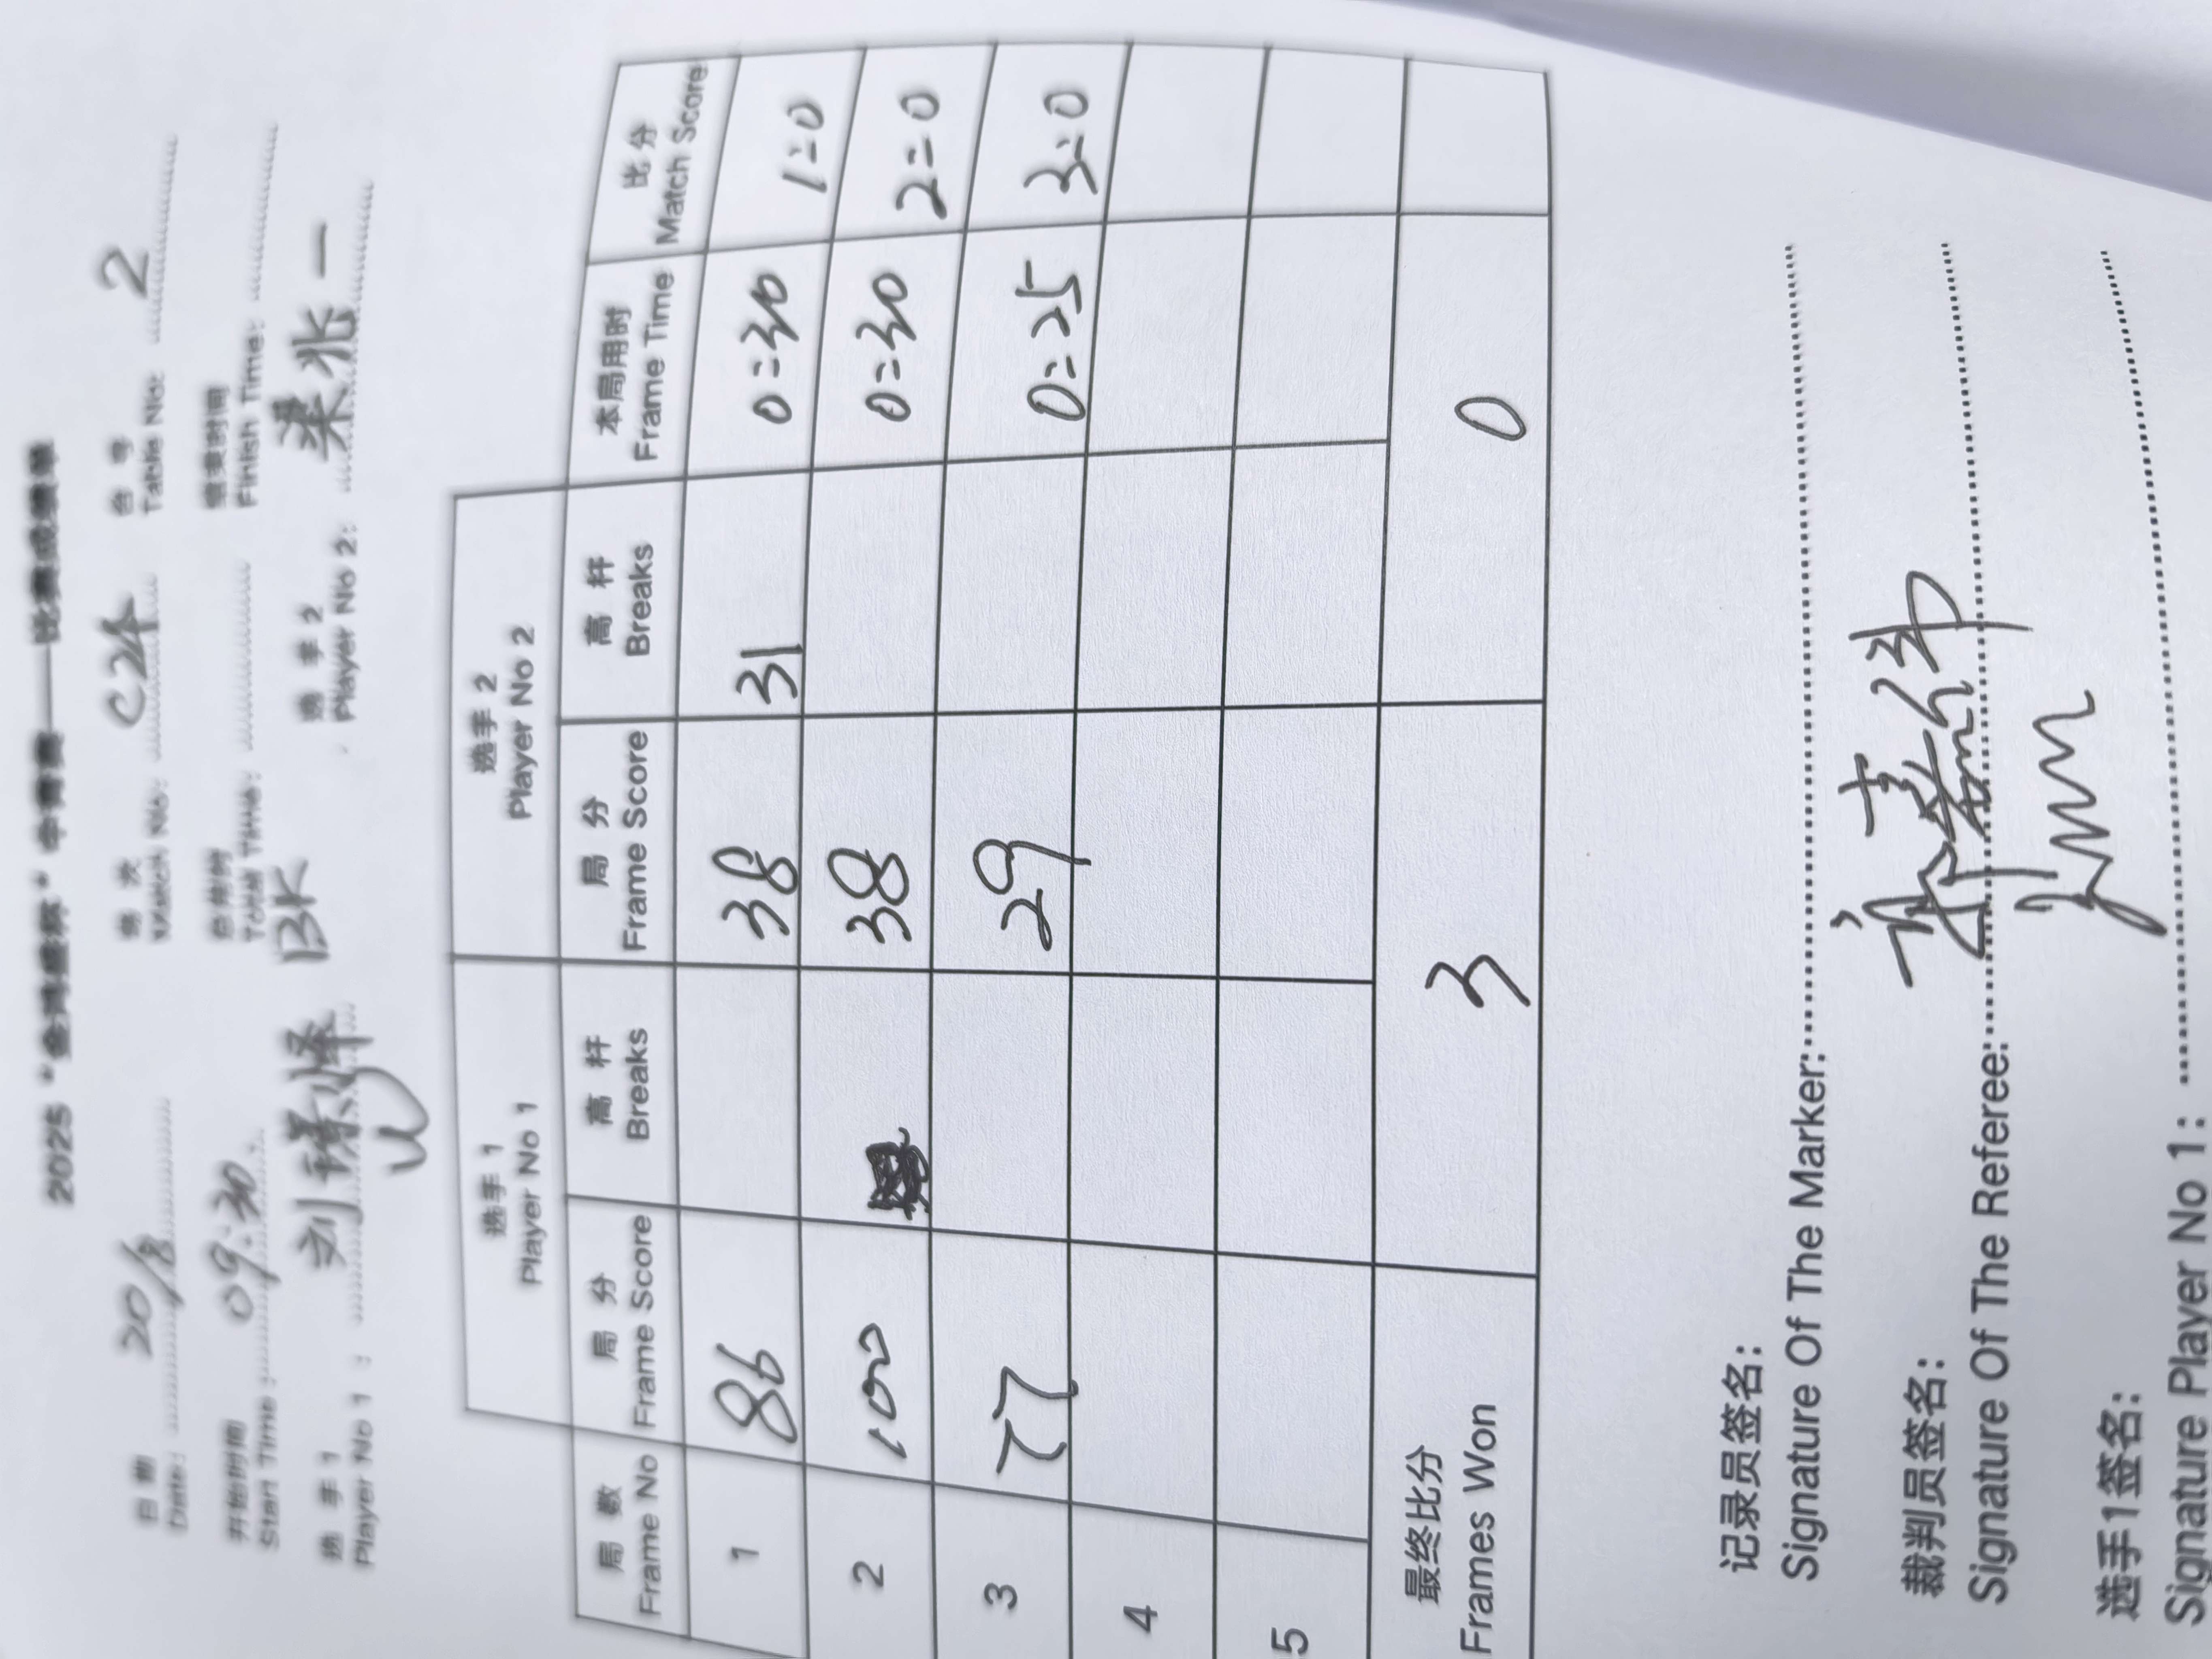 2025 "金鸿盛杯" 中青赛——比赛成绩单
日 期 场 次 台 号
Date: 20/8 Match No: C24 Table No: 2
开始时间 总用时 结束时间
Start Time: 09:30 Total Time: Finish Time:
选 手 1 选 手 2
Player No 1: 刘 BK Player No 2: 梁兆一
选手 1 选手 2
Player No 1 Player No 2
局 数 局 分 高 杆 局 分 高 杆 本局用时 比 分
Frame No Frame Score Breaks Frame Score Breaks Frame Time Match Score
1 86 38 31 0:30 1:0
2 100 38 0:30 2:0
3 77 29 0:25 3:0
4
5
最终比分
Frames Won 3 0
记录员签名:
Signature Of The Marker:
裁判员签名:
Signature Of The Referee:
选手1签名:
Signature Player No 1: